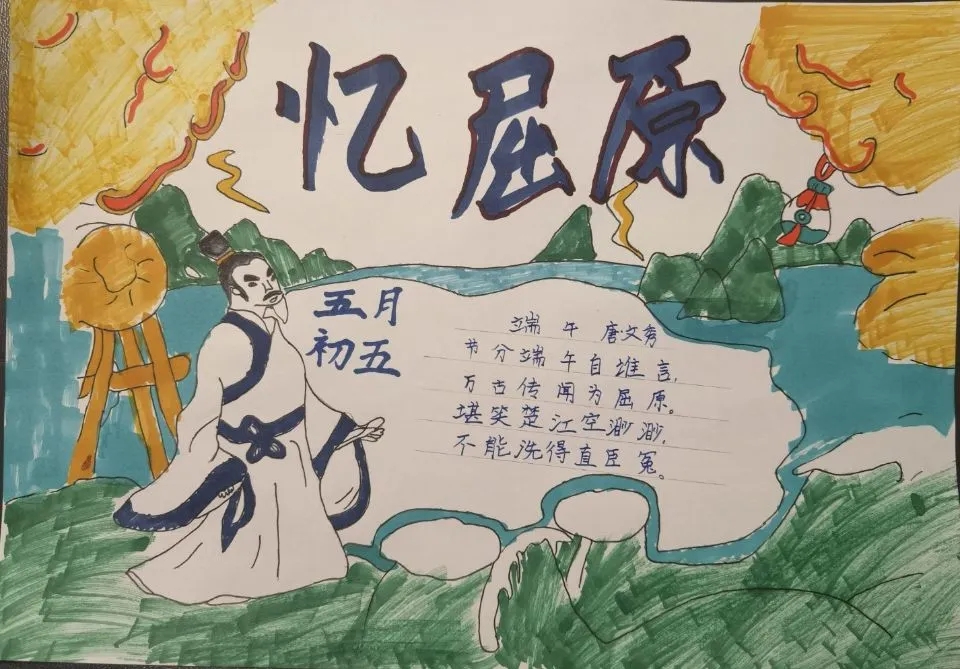 忆屈原
五月
初五
端午 唐·文秀
节分端午自谁言,
万古传闻为屈原。
堪笑楚江空渺渺,
不能洗得直臣冤。